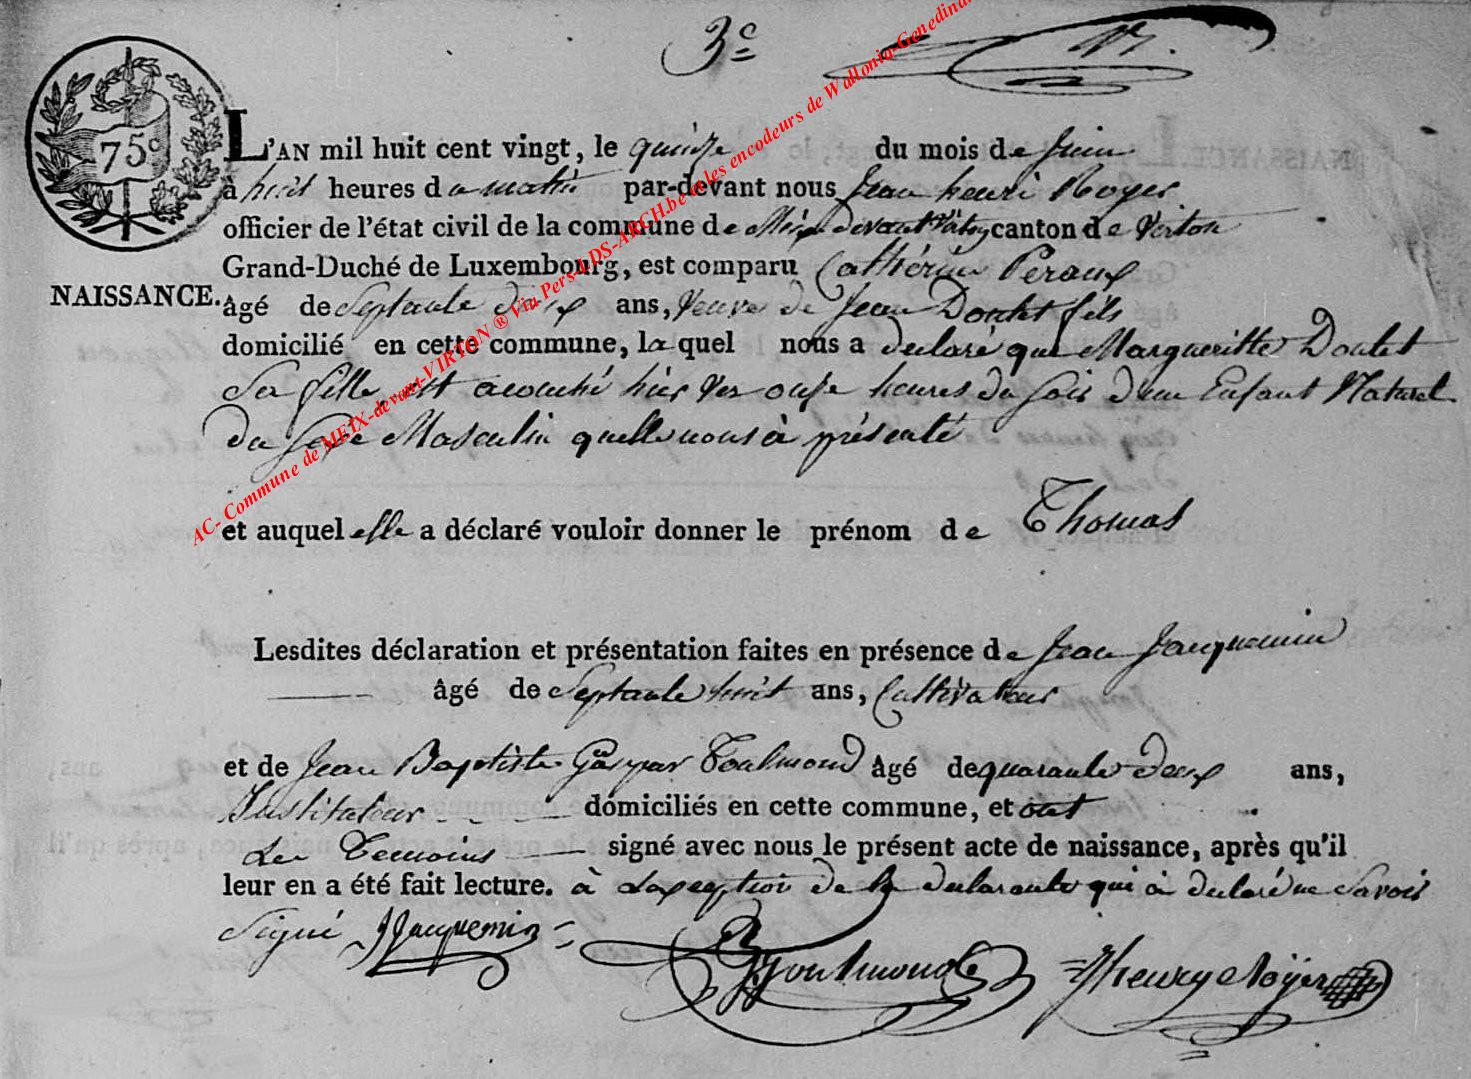 3e
75c
L'AN mil huit cent vingt, le quinze du mois de juin
à huit heures du matin par-devant nous Jean henri Noyer
officier de l'état civil de la commune de Meix devant Virton canton de Virton
Grand-Duché de Luxembourg, est comparu Catherine Peraux
NAISSANCE.
âgé de Septante deux ans, veuve de Jean Doutet fils
domicilié en cette commune, laquel nous a declaré que Margueritte Doutet
Sa fille est acouché hier ver onze heures du soir d'un Enfant Naturel
du sexe Masculin quelle nous à présenté
et auquel elle a déclaré vouloir donner le prénom de Thomas
Lesdites déclaration et présentation faites en présence de Jean Jacquemin
âgé de Septante huit ans, Cultivateur
et de Jean Baptiste Gaspar Toulmond âgé de quarante deux ans,
Instituteur domiciliés en cette commune, et ont
Les Temoins signé avec nous le présent acte de naissance, après qu'il
leur en a été fait lecture. à Lexception de la declarante qui à declaré ne Savoir
Signé JJacquemin
Toulmond
JHenry Noÿer
AC- Commune de MEIX-devant-VIRTON ® Via Pers-LDS-ARCH.be & les encodeurs de Wallonia-Genedinan